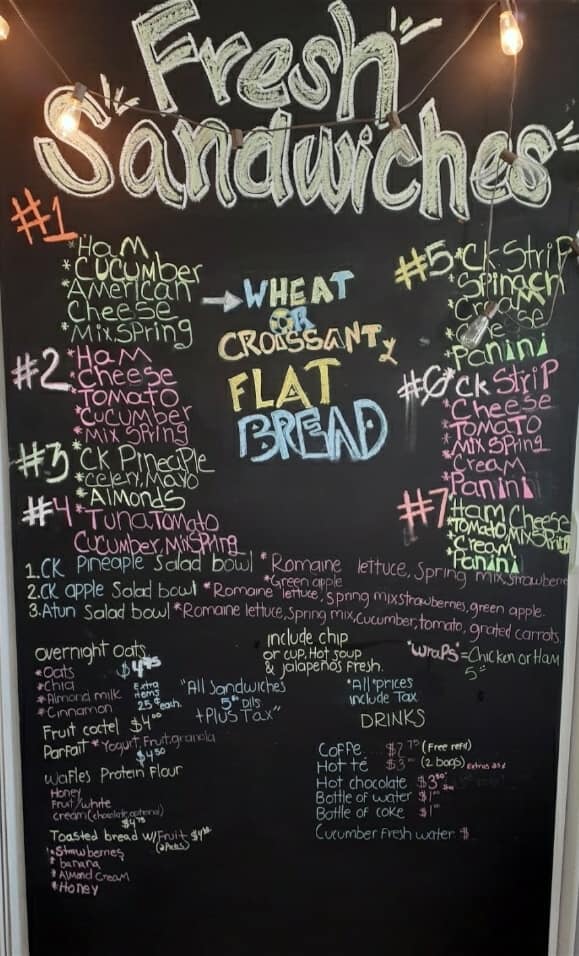 Fresh
Sandwiches
#1
*Ham
*Cucumber
*American
Cheese
*Mix Spring
#2 *Ham
*Cheese
Tomato
*Cucumber
*Mix Spring
#3 *CK Pineaple
*celery, Mayo
*Almonds
#4 *Tuna Tomato
Cucumber, Mix Spring
→ WHEAT
OR
CROISSANT y
FLAT
BREAD
#5 *CK Strip
*Spinach
*Cream
*Cheese
*Panini
#6 *CK Strip
*Cheese
*Tomato
*Mix Spring
*Cream
*Panini
#7 *Ham Cheese
*Tomato, Mix Spring
*Cream
*Panini
1. CK Pineaple Salad bowl *Romaine lettuce, Spring mix, strawberrie
*Green apple
2. CK apple Salad bowl *Romaine lettuce, Spring mix strawberries, green apple.
3. Atun Salad bowl *Romaine lettuce, Spring mix, cucumber, tomato, grated carrots
overnight oats $4.95
*Oats
*Chia
*Almond milk
*Cinnamon
Extra
items
25¢ each.
Fruit coctel $4.00
Parfait *Yogurt, Fruit, granola
$4.50
Wafles Protein Flour
Honey
Fruit/white
cream (chocolate optional)
Toasted bread w/Fruit
*Strawberries
*banana
*Almond Cream
*Honey
include chip
or cup. Hot soup
& jalapeños Fresh.
"All Sandwiches
+Plus Tax"
"Wraps" = Chicken or Ham
*All *prices
include Tax
DRINKS
Coffe $2.75 (Free refil)
Hot té (2 bags)
Hot chocolate
Bottle of water
Bottle of coke
Cucumber Fresh water $